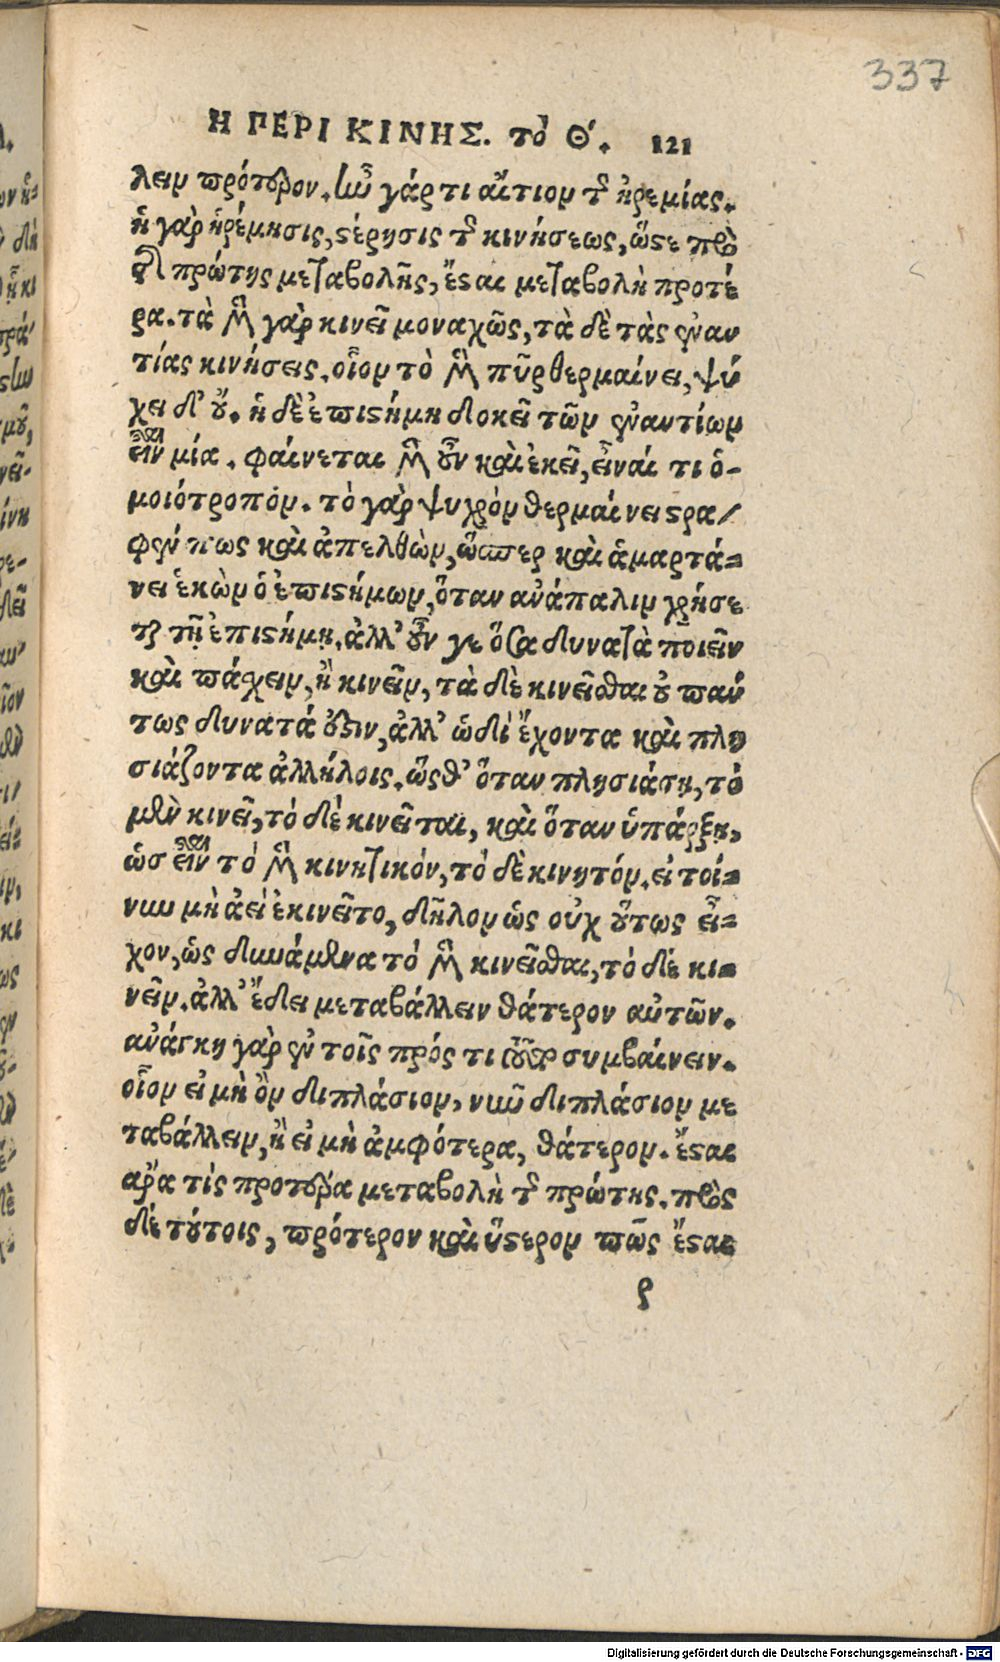 337
Η ΠΕΡΙ ΚΙΝΗΣ. τὸ Θ΄. 121
λειν πρότερον. ἦν γάρ τι αἴτιον τῆς ἠρεμίας.
ἡ γὰρ ἠρέμησις, στέρησις τῆς κινήσεως, ὥστε πρὸ
τῆς πρώτης μεταβολῆς, ἔσται μεταβολὴ προτέ
ρα. τὰ μὲν γὰρ κινεῖ μοναχῶς, τὰ δὲ τὰς ἐναν
τίας κινήσεις. οἷον τὸ μὲν πῦρ θερμαίνει, ψύ
χει δ' οὔ. ἡ δὲ ἐπιστήμη δοκεῖ τῶν ἐναντίων
εἶναι μία. φαίνεται μὲν οὖν καὶ ἐκεῖ, εἶναί τι ὁ-
μοιότροπόν. τὸ γὰρ ψυχρὸν θερμαίνει στρα/
φέν πως καὶ ἀπελθὼν, ὥσπερ καὶ ἁμαρτά=
νει ἑκὼν ὁ ἐπιστήμων, ὅταν ἀνάπαλιν χρήσε
ται τῇ ἐπιστήμῃ. ἀλλ' οὖν γε ὅσα δυνατὰ ποιεῖν
καὶ πάσχειν, ἢ κινεῖν, τὰ δὲ κινεῖσθαι οὐ πάν
τως δυνατά ἐστιν, ἀλλ' ὡδὶ ἔχοντα καὶ πλη
σιάζοντα ἀλλήλοις. ὥσθ' ὅταν πλησιάσῃ, τὸ
μὲν κινεῖ, τὸ δὲ κινεῖται, καὶ ὅταν ὑπάρξῃ,
ὡς εἶναι τὸ μὲν κινητικόν, τὸ δὲ κινητόν. εἰ τοί=
νυν μὴ ἀεὶ ἐκινεῖτο, δῆλον ὡς οὐχ οὕτως εἶ=
χον, ὡς δυνάμενα τὸ μὲν κινεῖσθαι, τὸ δὲ κι=
νεῖν. ἀλλ' ἔδει μεταβάλλειν θάτερον αὐτῶν.
ἀνάγκη γὰρ ἐν τοῖς πρός τι τοῦτο συμβαίνειν.
οἷον εἰ μὴ ὂν διπλάσιον, νῦν διπλάσιον με
ταβάλλειν, ἢ εἰ μὴ ἀμφότερα, θάτερον. ἔσται
ἄρα τὶς προτέρα μεταβολὴ τῆς πρώτης. πρὸς
δὲ τούτοις, πρότερον καὶ ὕστερον πῶς ἔσται
ς
Digitalisierung gefördert durch die Deutsche Forschungsgemeinschaft - DFG